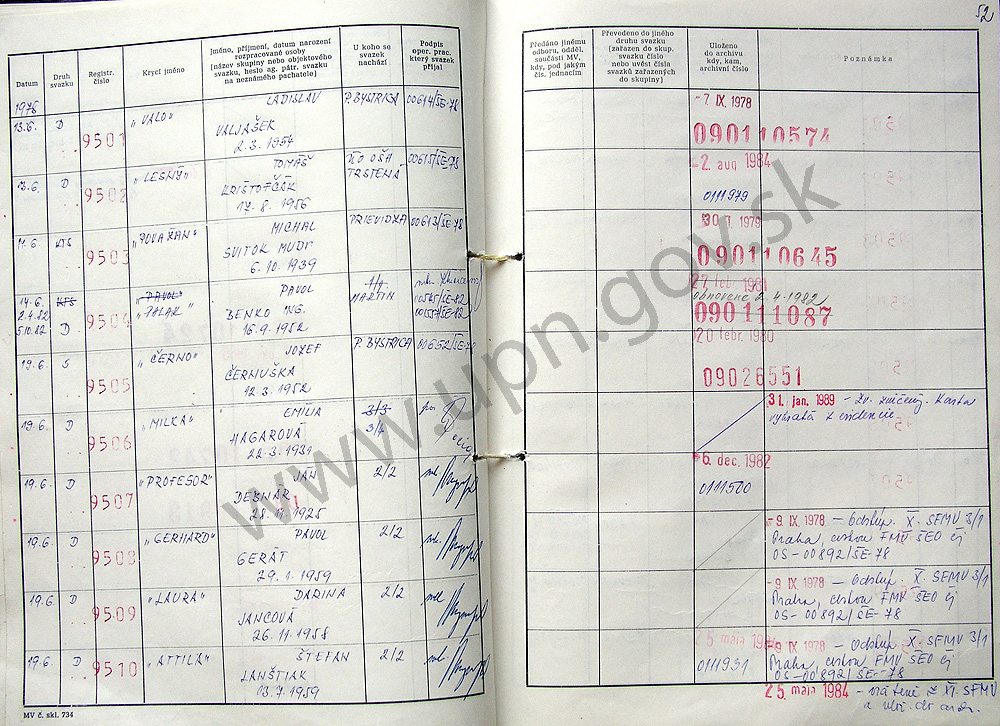 52
Datum
Druh
svazku
Registr.
číslo
Krycí jméno
Jméno, příjmení, datum narození
rozpracované osoby
(název skupiny nebo objektového
svazku, heslo ag. pátr. svazku
na neznámého pachatele)
U koho se
svazek
nachází
Podpis
oper. prac.
který svazek
přijal
Předáno jinému
odboru, odděl.
součásti MV,
kdy, pod jakým
čís. jednacím
Převedeno do jiného
druhu svazku
(zařazen do skup.
svazku číslo
nebo uvést čísla
svazků zařazených
do skupiny)
Uloženo
do archivu
kdy, kam,
archivní číslo
Poznámka
1978
13.6. D 9501 „VALO" LADISLAV P. BYSTRICA 00614/ŠE-78
VALJAŠEK
2.3.1954
-7. IX. 1978
090110574
13.6. D 9502 „LESNÝ" TOMÁŠ OŠA 00615/ŠE-78
KRIŠTOFČÁK TRSTENÁ
17.8.1956
-2. aug 1984
0111979
9503 „POVAŽAN" MICHAL PRIEVIDZA 00613/ŠE-78
SVITOK MUDr
6.10.1939
1979
090110645
14.6. KTS 9504 „PAVOL" PAVOL
2.4.82 „TALAR" BENKO ING. MARTIN 00545/ŠE-82
5.10.82 D 16.9.1952
27 feb 1981
obnovené 2.4.1982
090111087
19.6. S 9505 „ČERNO" JOZEF P. BYSTRICA 00652/ŠE-78
ČERNUŠKA
12.3.1952
20 febr. 1980
09026551
19.6. D 9506 „MILKA" EMILIA 3/3
HAGAROVÁ 3/4
22.3.1931
31. jan. 1989 - zv. zničený. Karta
vybratá z evidencie
19.6. D 9507 „PROFESOR" JÁN 2/2
DESNÁR
1925
-6. dec. 1982
0111500
19.6. D 9508 „GERHARD" PAVOL 2/2
GERÁT
29.1.1959
-9 IX. 1978 - Odstúp. X. SFMV 3/1
Praha, cestou FMV ŠEO čj
OS-00892/ŠE-78
19.6. D 9509 „LAURA" DARINA 2/2
JANCOVÁ
26.11.1958
-9 IX. 1978 - Odstúp. X. SFMV 3/1
Praha, cestou FMV ŠEO čj
OS-00892/ŠE-78
19.6. D 9510 „ATTILA" ŠTEFAN 2/2
LANŠTIAK
13.7.1959
25. mája 1984
0111931
-9 IX. 1978 - Odstúp. X. SFMV 3/1
Praha, cestou FMV ŠEO čj
OS-00892/ŠE-78
25. mája 1984 - vrátené z XI. SFMV
a ulož. do arch.
MV č. skl. 734
www.upn.gov.sk